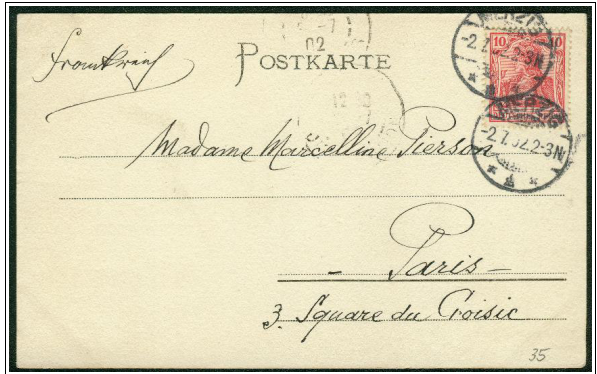 Frankreich
POSTKARTE
-7
02
10 10
MERZIG
-2.7.02.2-3N
MERZIG
-2.7.02.2-3N
Madame Marcelline Pierson
- Paris -
3. Square du Croisic
35